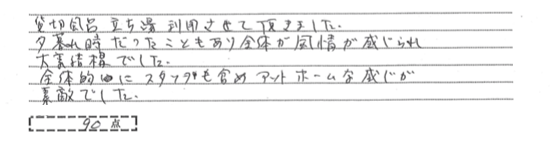 貸切風呂 立ち湯 利用させて頂きました.
夕暮れ時だったこともあり全体が風情が感じられ
大変結構でした.
全体的にスタッフも含めアットホームな感じが
素敵でした.
90点